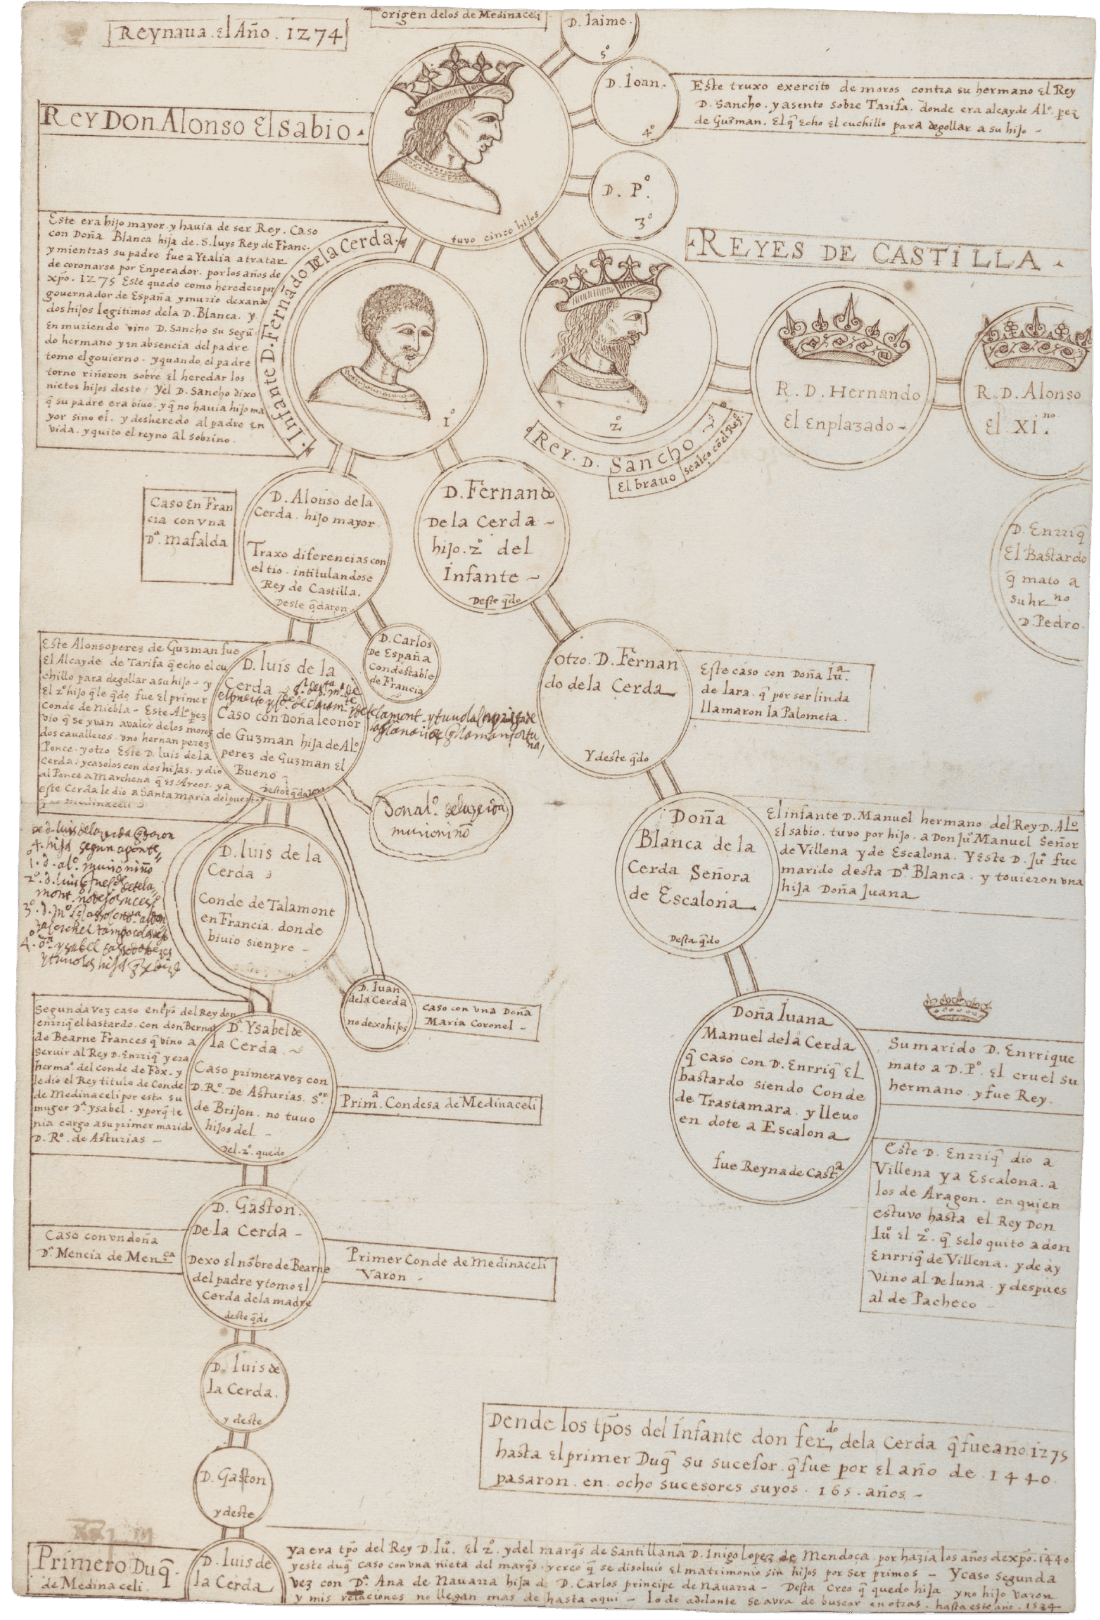 origen delos de Medinaceli
Reynaua. el Año. 1274
D. Iaime.
5º
D. Ioan.
4º
Este truxo exercito de moros contra su hermano el Rey
D. Sancho. y asento sobre Tarifa. donde era alcayde Alº. pez
de Guzman. el q̃ echo el cuchillo para degollar a su hijo -
Rey Don Alonso el Sabio.
tuvo cinco hijos
D. Pº.
3º
REYES DE CASTILLA.
Este era hijo mayor. y hauia de ser Rey. Caso
con Doña Blanca hija de. S. luys Rey de Franc.
y mientras su padre fue a Ytalia atratar
de coronarse por Enperador. por los años de
xpõ. 1275 Este quedo como heredero por
gouernador de España y murio dexando
dos hijos legitimos dela D. Blanca. y
en muriendo vino D. Sancho su segũ
do hermano y in absencia del padre
tomo el gouierno. y quando el padre
torno riñeron sobre el heredar los
nietos hijos deste. y el D. Sancho dixo
q̃ su padre era biuo. y q̃ no hauia hijo ma
yor sino el. y desheredo al padre en
vida. y quito el reyno al sobrino.
Infante D. Fernãdo de la Cerda.
1º
2º
Rey. D. Sancho
El brauo
se alço cõ el Reyº
R. D. Hernando
El Enplazado -
R. D. Alonso
el XI.no
D. Enrriq̃
el Bastardo
q̃ mato a
su hr.no
D. Pedro.
Caso en Fran
cia con vna
Dª. mafalda
D. Alonso de la
Cerda. hijo mayor.
Traxo diferencias con
el tio. intitulandose
Rey de Castilla.
Deste q̃daron
D. Fernando
De la Cerda -
hijo. 2º del
Infante -
Deste q̃do
D. Carlos
de España
Condestable
de Francia
Este Alonso peres de Guzman fue
el Alcayde de Tarifa q̃ echo el cu
chillo para degollar a su hijo - y
el 2º hijo q̃ le q̃do fue el primer
Conde de Niebla - Este Alº. pez
vio q̃ se yvan a valer de los moros
dos caualleros. vno hernan perez
Ponce. y otro Este D. luis de la
Cerda. y casolos con dos hijas. y dio
al Ponce a Marchena q̃ es Arcos. ya
este Cerda le dio a Santa Maria del puerto
q̃ es medinaceli -
D. luis de la
Cerda
Caso con Dona leonor
de Guzman hija de Alº
perez de Guzman el
Bueno -
Destos q̃daron
otro. D. Fernan
do de la Cerda
Y deste q̃do
Este caso con Doña Iuª.
de lara. q̃ por ser linda
llamaron la Palometa.
murio niño
D. luis de la
Cerda
Conde de Talamont
en Francia. donde
biuio sienpre -
Doña
Blanca de la
Cerda Señora
de Escalona
Desta q̃do
El infante D. Manuel hermano del Rey D. Alº
el sabio. tuvo por hijo. a Don Juº Manuel Señor
de Villena y de Escalona. Y este D. Juº fue
marido desta Dª Blanca. y touieron vna
hija Doña Juana
D. Iuan
de la Cerda
no dexo hijos
caso con vna Doña
Maria Coronel -
Segunda vez caso en tpõ del Rey don
enrriq̃ el bastardo. con don Bernal
de Bearne Frances q̃ vino a
seruir al Rey D. Enrriq̃ y era
hermº. del conde de Fox. y
le dio el Rey titulo de Conde
de Medinaceli por esta su
muger Dª ysabel. y porq̃ te
nia cargo a su primer marido
D. Rº. de Asturias -
Dª Ysabel de
la Cerda. -
Caso primera vez con
D. Rº. De Asturias. Sor
de Brijon. no tuuo
hijos del -
Del. 2º. quedo
Primª. Condesa de Medinaceli
Doña Iuana
Manuel de la Cerda
q̃ caso con D. Enrriq̃ El
bastardo siendo Conde
de Trastamara. y lleuo
en dote a Escalona
fue Reyna de Castª
Su marido D. Enrrique
mato a D. Pº. el cruel su
hermano. y fue Rey.
Este D. Enrriq̃ dio a
Villena y a Escalona. a
los de Aragon. en quien
estuvo hasta el Rey Don
Iuº el 2º. q̃ selo quito a don
Enrriq̃ de Villena. y de ay
vino al De luna. y despues
al de Pacheco -
Caso con vn doña
Dª Mencia de Menca
D. Gaston.
De la Cerda -
Dexo el nõbre de Bearne
del padre y tomo el
Cerda de la madre
deste q̃do
Primer Conde de Medinaceli
Varon -
D. luis de
la Cerda.
y deste
D. Gaston
y deste
Dende los tpõs del Infante don ferdo dela Cerda q̃ fue año. 1275
hasta el primer Duq̃ su sucesor. q̃ fue por el año de. 1440.
pasaron. en ocho sucesores suyos. 165. años -
Primero Duq̃
de Medinaceli.
D. luis de
la Cerda
ya era tpõ del Rey D. Iuº. el 2º. y del marq̃s de Santillana D. Inigo Lopez de Mendoça. por hazia los años de xpõ. 1440.
y este duq̃ caso con vna nieta del marq̃s. y creo q̃ se disoluio el matrimonio sin hijos por ser primos - Y caso segunda
vez con Dª. Ana de Nauarra hija de D. Carlos principe de Nauarra - Desta creo q̃ quedo hija y no hijo varon
y mis relaciones no llegan mas de hasta aqui - lo de adelante se avra de buscar en otras. hasta este año. 1584